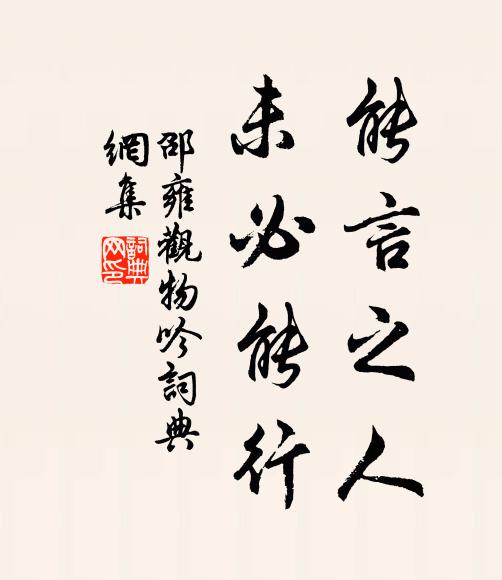 能言之人
未必能行
邵雍觀物吟詞典
網集
詞典
网印